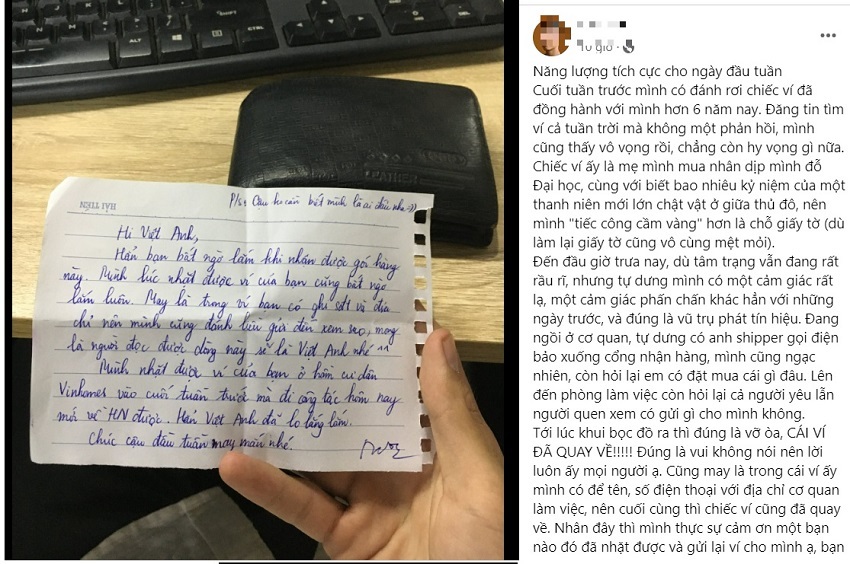 HẢI TIẾN
P/s: Cậu ko cần biết mình là ai đâu nha :))
Hi Việt Anh,
Hẳn bạn bất ngờ lắm khi nhận được gói hàng
này. Mình lúc nhặt được ví của bạn cũng bất ngờ
lắm luôn. May là trong ví bạn có ghi sđt và địa
chỉ nên mình cũng đánh liều gửi đến xem sao, mong
là người đọc được dòng này sẽ là Việt Anh nhé ^^
Mình nhặt được ví của bạn ở hầm cư dân
Vinhomes vào cuối tuần trước mà đi công tác hôm nay
mới về HN được. Hẳn Việt Anh đã lo lắng lắm.
Chúc cậu đầu tuần may mắn nhé.
10 giờ
Năng lượng tích cực cho ngày đầu tuần
Cuối tuần trước mình có đánh rơi chiếc ví đã
đồng hành với mình hơn 6 năm nay. Đăng tin tìm
ví cả tuần trời mà không một phản hồi, mình
cũng thấy vô vọng rồi, chẳng còn hy vọng gì nữa.
Chiếc ví ấy là mẹ mình mua nhân dịp mình đỗ
Đại học, cùng với biết bao nhiêu kỷ niệm của một
thanh niên mới lớn chật vật ở giữa thủ đô, nên
mình "tiếc công cầm vàng" hơn là chỗ giấy tờ (dù
làm lại giấy tờ cũng vô cùng mệt mỏi).
Đến đầu giờ trưa nay, dù tâm trạng vẫn đang rất
rầu rĩ, nhưng tự dưng mình có một cảm giác rất
lạ, một cảm giác phấn chấn khác hẳn với những
ngày trước, và đúng là vũ trụ phát tín hiệu. Đang
ngồi ở cơ quan, tự dưng có anh shipper gọi điện
bảo xuống cổng nhận hàng, mình cũng ngạc
nhiên, còn hỏi lại em có đặt mua cái gì đâu. Lên
đến phòng làm việc còn hỏi lại cả người yêu lẫn
người quen xem có gửi gì cho mình không.
Tới lúc khui bọc đồ ra thì đúng là vỡ òa, CÁI VÍ
ĐÃ QUAY VỀ!!!!! Đúng là vui không nói nên lời
luôn ấy mọi người ạ. Cũng may là trong cái ví ấy
mình có để tên, số điện thoại với địa chỉ cơ quan
làm việc, nên cuối cùng thì chiếc ví cũng đã quay
về. Nhân đây thì mình thực sự cảm ơn một bạn
nào đó đã nhặt được và gửi lại ví cho mình ạ, bạn